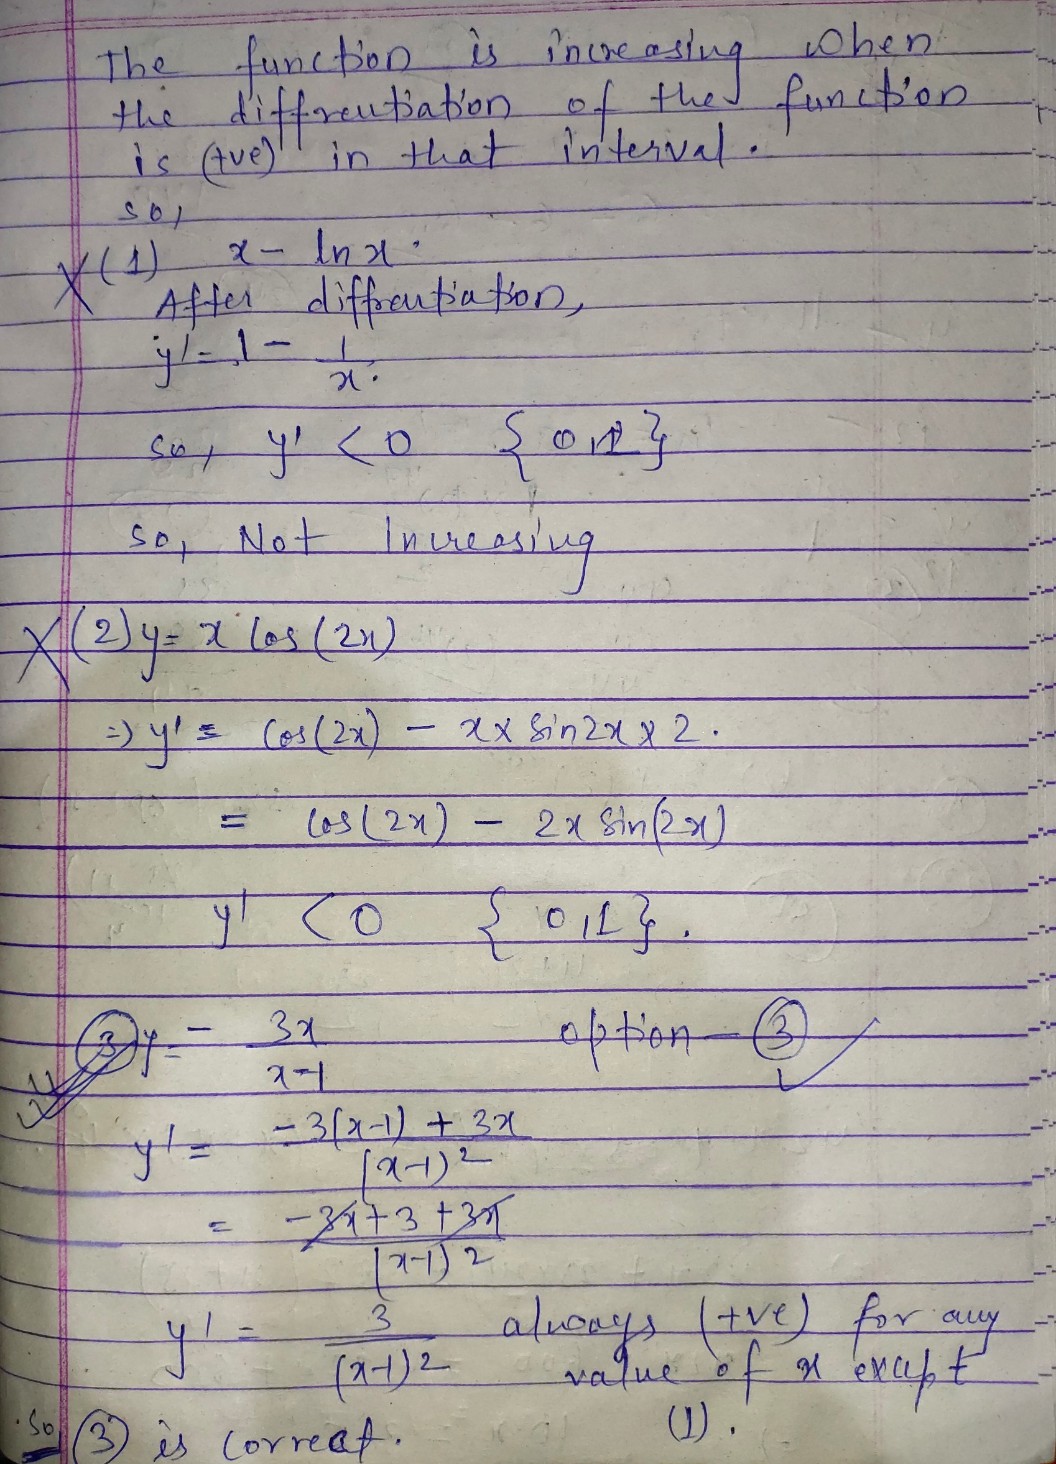 The function is increasing when
the diffrentiation of the function
is (+ve) in that interval.
so,
X (1) x - ln x.
After diffrentiation,
y' = 1 - 1/x.
so, y' < 0 {0,1}
so, Not Increasing
X (2) y = x cos(2x)
=> y' = cos(2x) - x x sin2x x 2.
= cos(2x) - 2x sin(2x)
y' < 0 {0,1}.
(3) y = - 3x/(x-1) option - (3) ✓
y' = (-3(x-1) + 3x)/(x-1)^2
= (-3x + 3 + 3x)/(x-1)^2
y' = 3/(x-1)^2 always (+ve) for any
value of x except
(1).
So (3) is correct.